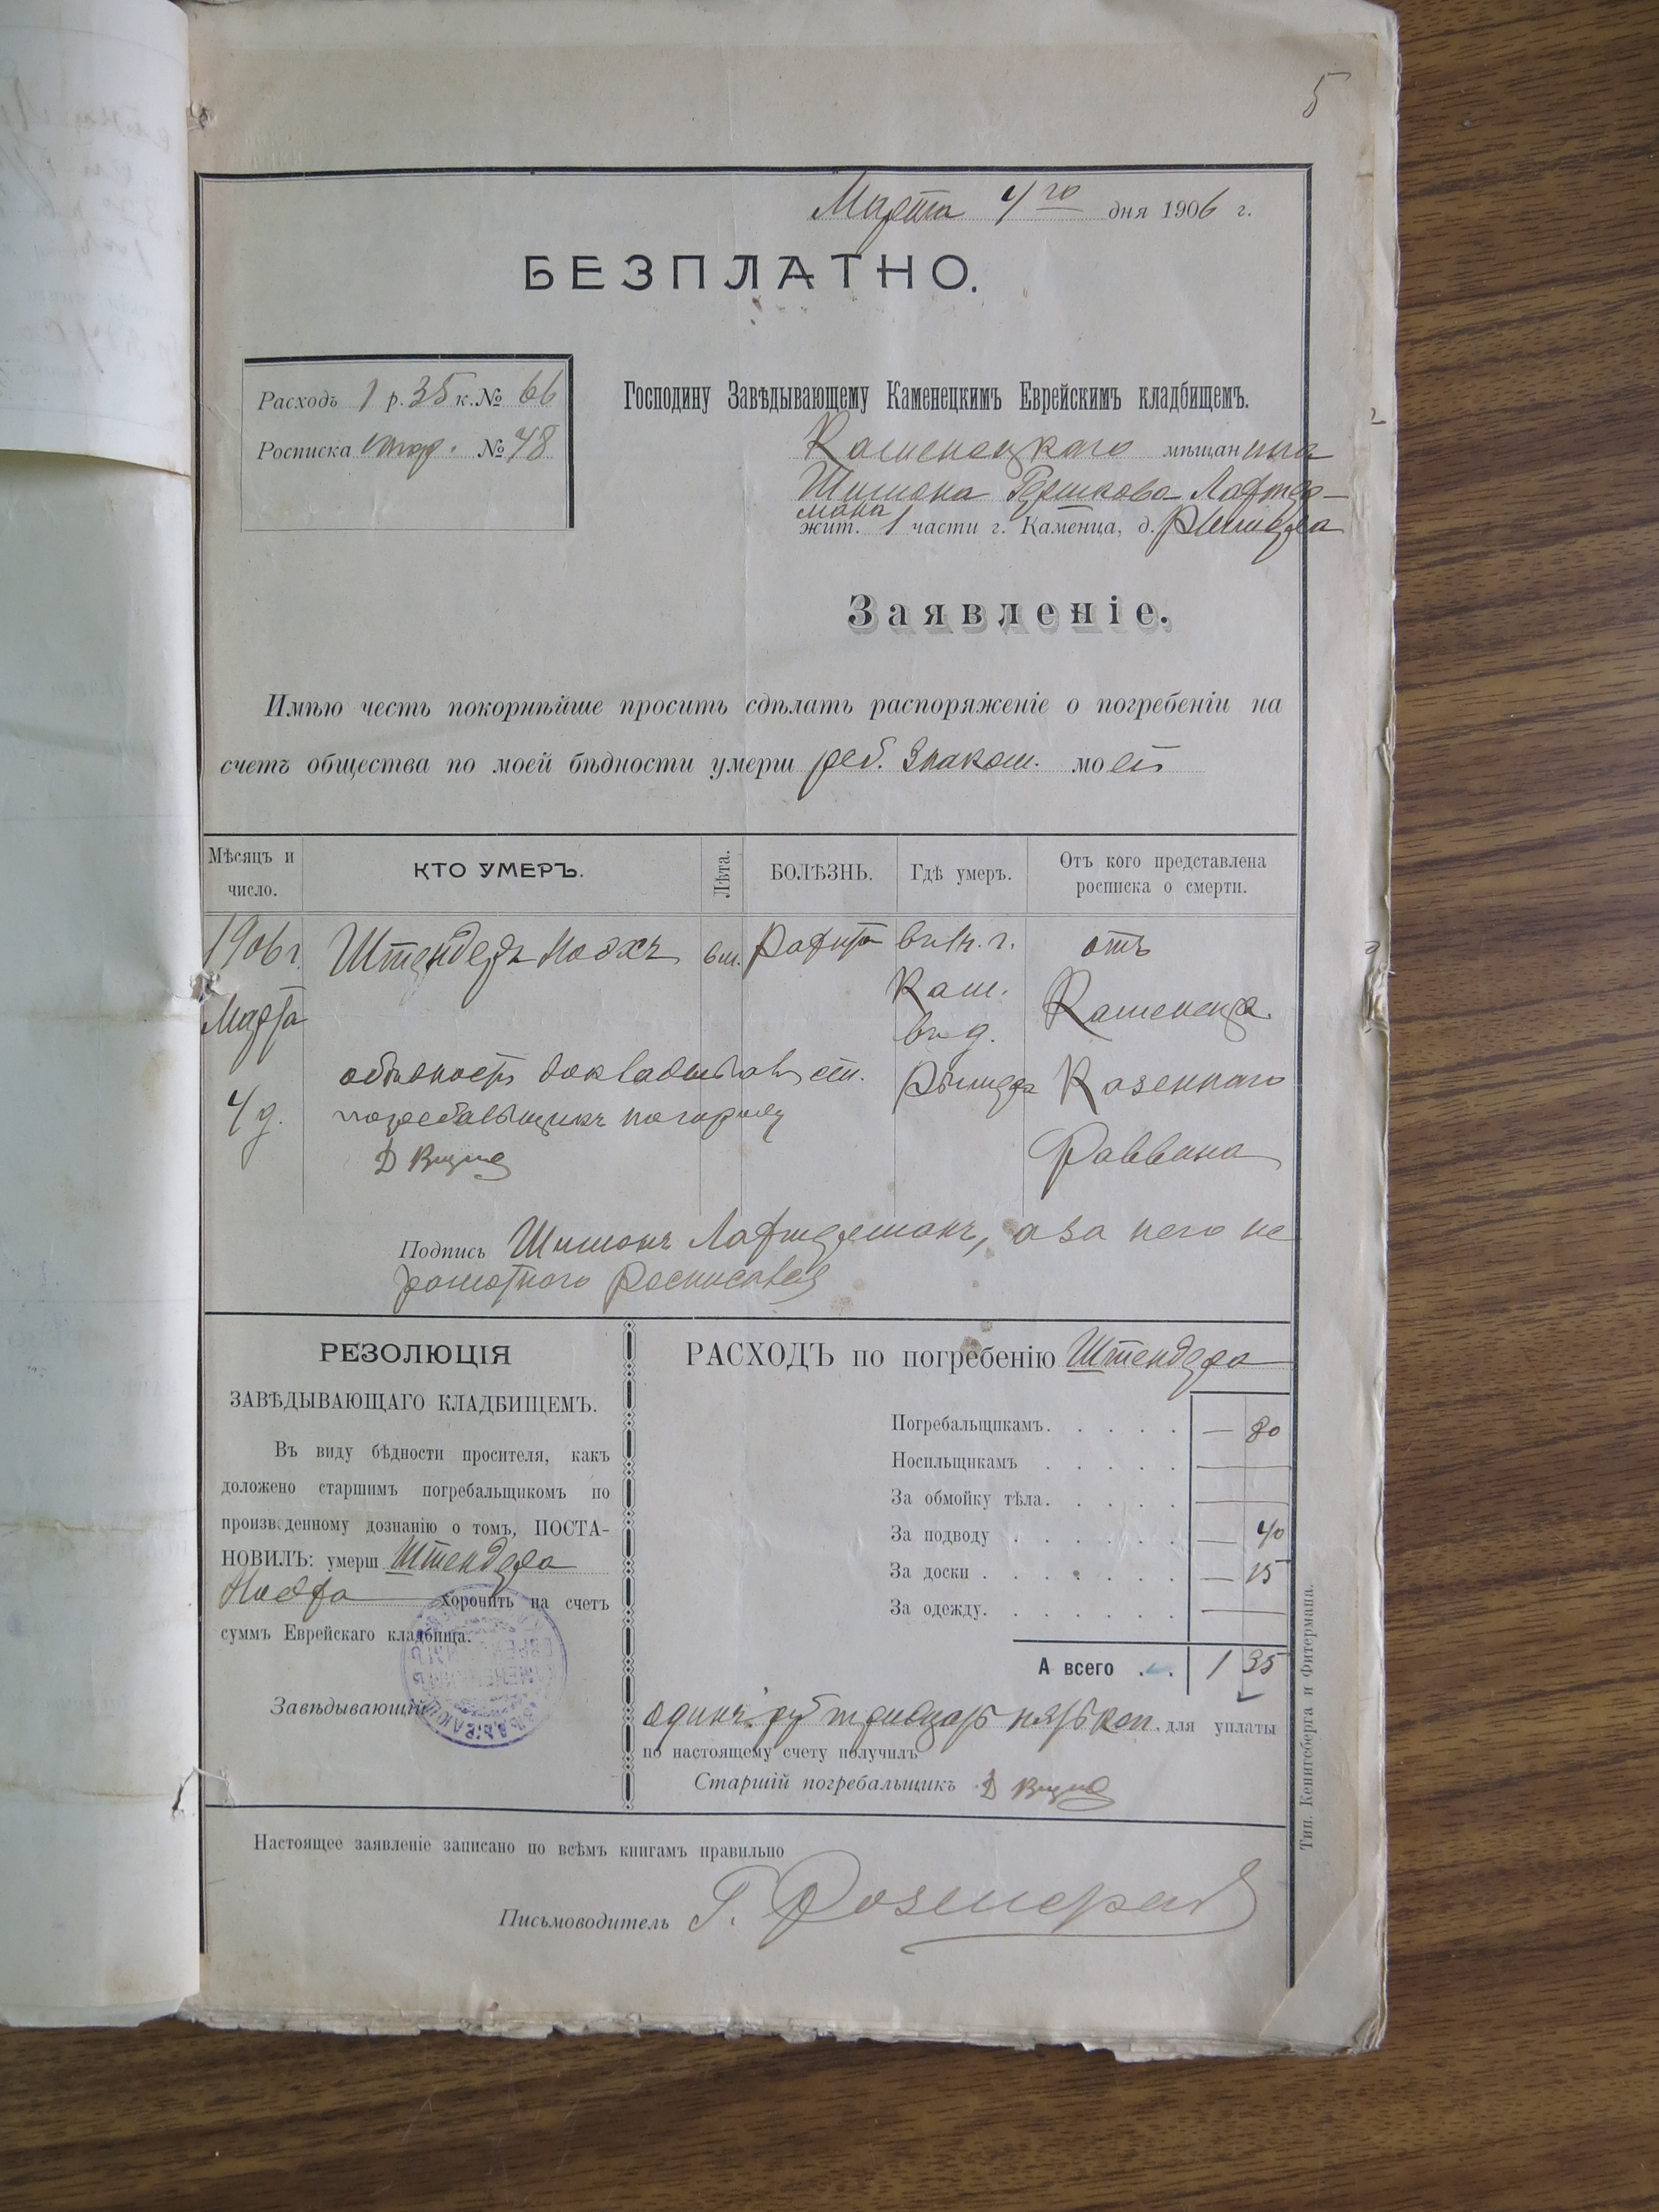 5
Марта 4го дня 1906 г.
БЕЗПЛАТНО.
Расходъ 1 р. 35 к. № 66
Росписка № 48
Господину Завѣдывающему Каменецкимъ Еврейскимъ кладбищемъ.
Каменецкаго мѣщанина
Шимона Гершкова Лафтер-
мана
жит. 1 части г. Каменца, д.
Заявленіе.
Имѣю честь покорнѣйше просить сдѣлать распоряженіе о погребеніи на
счетъ общества по моей бѣдности умерш реб. Знаком. моей
Мѣсяцъ и число.
КТО УМЕРЪ.
Лѣта.
БОЛѢЗНЬ.
Гдѣ умеръ.
Отъ кого представлена росписка о смерти.
1906 г. Штендеръ 6 м. Рахитъ въ г. отъ
Марта Кам. Каменецк.
въ д.
4 д. о бѣдности докладывает ст. Казеннаго
погребальщикъ
Д Раввина
Подпись Шимонъ Лафтерманъ, а за него не
грамотнаго Росписался
РЕЗОЛЮЦІЯ
ЗАВѢДЫВАЮЩАГО КЛАДБИЩЕМЪ.
Въ виду бѣдности просителя, какъ
доложено старшимъ погребальщикомъ по
произведенному дознанію о томъ, ПОСТА-
НОВИЛЪ: умерш Штендера
хоронить на счетъ
суммъ Еврейскаго кладбища.
Завѣдывающій
РАСХОДЪ по погребенію Штендера
Погребальщикамъ. . . . . — 80
Носильщикамъ . . . . . —
За обмойку тѣла. . . . . —
За подводу . . . . . . — 40
За доски . . . . . . . — 15
За одежду. . . . . . . —
А всего . . 1 35
одинъ руб тридцать пять коп. для уплаты
по настоящему счету получилъ
Старшій погребальщикъ Д
Настоящее заявленіе записано по всѣмъ книгамъ правильно
Письмоводитель Г.
Тип. Кенигсберга и Фитермана.